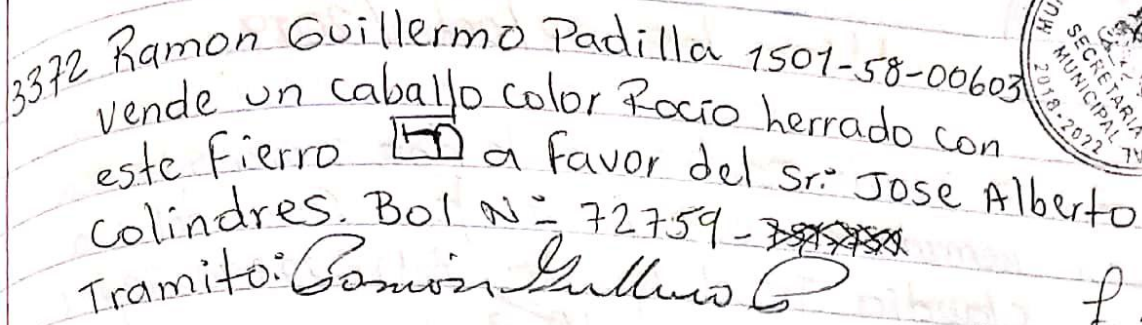 3372 Ramon Guillermo Padilla 1501-58-00603
vende un caballo color Rocio herrado con
este Fierro a favor del sr: Jose Alberto
Colindres. Bol Nº 72759-
Tramito: Ramón Guillermo P
SECRETARIA
MUNICIPAL
2018-2022